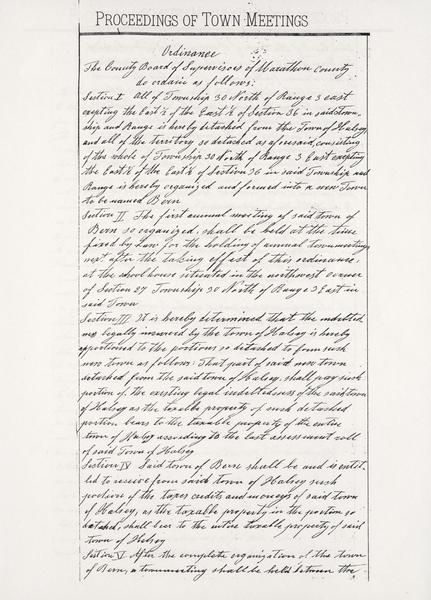 PROCEEDINGS OF TOWN MEETINGS
Ordinance
The County Board of Supervisors of Marathon County
do ordain as follows:
Section I All of Township 30 North of Range 3 east
exepting the East ½ of the East ½ of Section 36 in said town-
ship and Range is hereby detached from the Town of Halsey
and all of the territory so detached as aforesaid, consisting
of the whole of Township 30 North of Range 3 East exepting
the East ½ of the East ½ of Section 36 in said Township and
Range is hereby organized and formed into a new Town
to be named Bern
Section II The first annual meeting of said town of
Bern so organized, shall be held at the time
fixed by Law for the holding of annual town meetings
next after the taking effect of this ordinance,
at the schoolhouse situated in the northwest corner
of Section 27 Township 30 North of Range 3 East in
said Town
Section III It is hereby determined that the indebted
ness legally incurred by the town of Halsey is hereby
apportioned to the portions so detached to form such
new town as follows: That part of said new town
detached from the said town of Halsey, shall pay such
portion of the existing legal indebtedness of the said town
of Halsey as the taxable property of such detached
portion bears to the taxable property of the entire
town of Halsey according to the last assessment roll
of said Town of Halsey
Section IV Said town of Bern shall be and is entit-
led to receive from said town of Halsey such
portion of the taxes credits and moneys of said town
of Halsey, as the taxable property in the portion so
detached, shall bear to the entire taxable property of said
town of Halsey
Section V After the complete organization of the town
of Bern, a town meeting shall be held between the